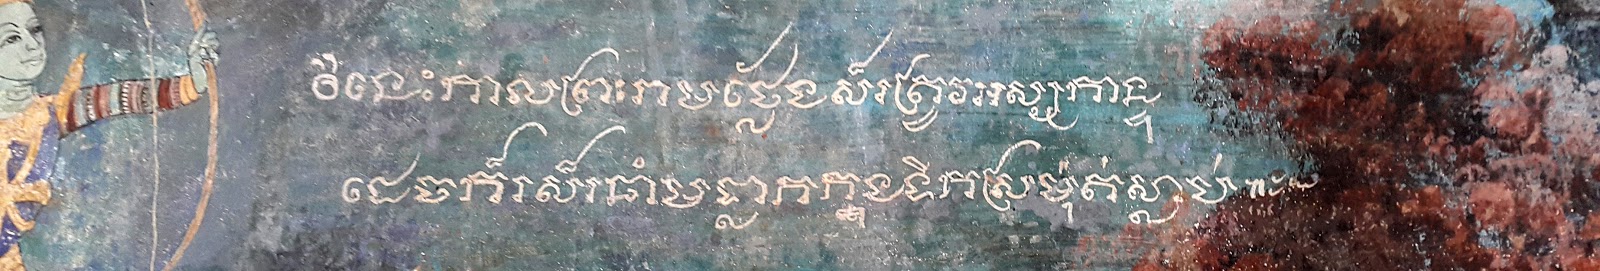 ទីនេះកាលព្រះរាមថ្លែងស៏រត្រូវអស្សកាន្ទ
ដេចក៏រស៏រធ្លាកក្នុងទឹកស្រម៉ុត់ស្លាប់